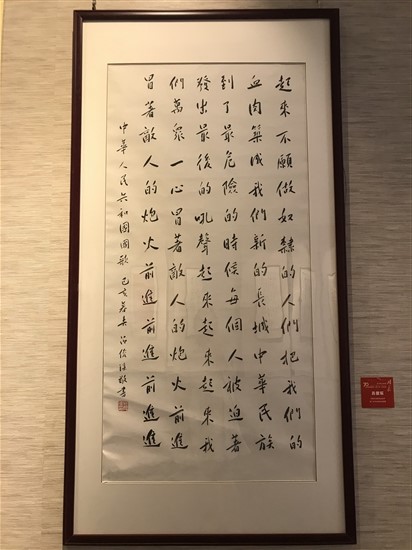 起來不願做奴隸的人們把我們的
血肉築成我們新的長城中華民族
到了最危險的時候每個人被迫著
發出最後的吼聲起來起來起來我
們萬眾一心冒著敵人的炮火前進
冒著敵人的炮火前進前進前進進
中華人民共和國國歌 己亥春 敬書